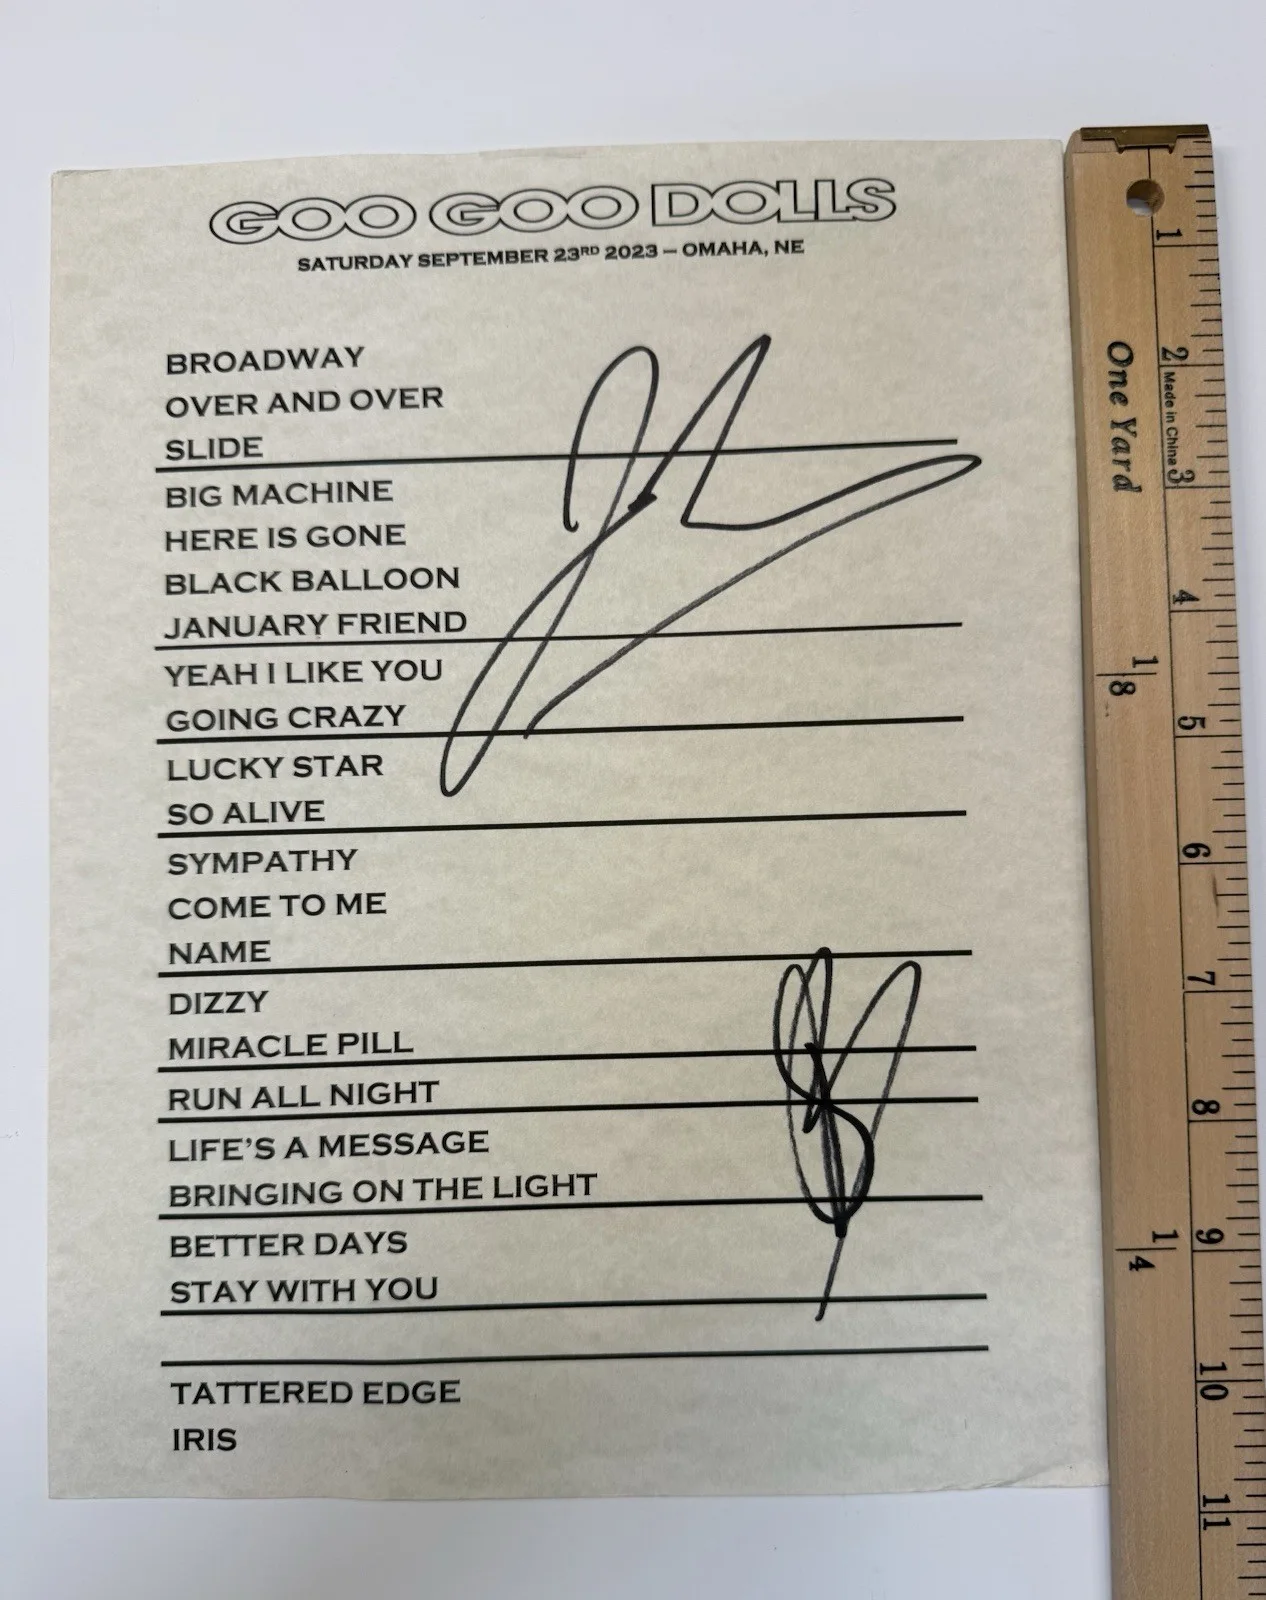 GOO GOO DOLLS
SATURDAY SEPTEMBER 23RD 2023 – OMAHA, NE
BROADWAY
OVER AND OVER
SLIDE
BIG MACHINE
HERE IS GONE
BLACK BALLOON
JANUARY FRIEND
YEAH I LIKE YOU
GOING CRAZY
LUCKY STAR
SO ALIVE
SYMPATHY
COME TO ME
NAME
DIZZY
MIRACLE PILL
RUN ALL NIGHT
LIFE'S A MESSAGE
BRINGING ON THE LIGHT
BETTER DAYS
STAY WITH YOU
TATTERED EDGE
IRIS
One Yard
Made in China
1
2
3
4
5
6
7
8
9
10
11
1/8
1/4